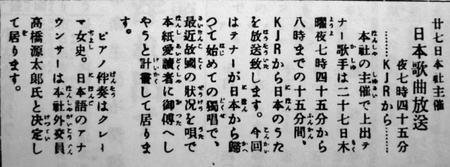 廿七日本社主催
日本歌曲放送
夜七時四十五分
……KJRから……
本社の主催で上出テ
ナー歌手は二十七日木
曜夜七時四十五分から
八時までの十五分間、
KJRから日本のうた
を放送致します。今回
はテナーが日本から歸
つて始めての獨唱で、
最近故國の狀況を唄で
本紙愛讀者に御傳へし
やうと計畫して居りま
す。
ピアノ伴奏はクレー
マ女史。日本語のアナ
ウンサーは本社外交員
高橋源太郎氏と決定し
て居ります。